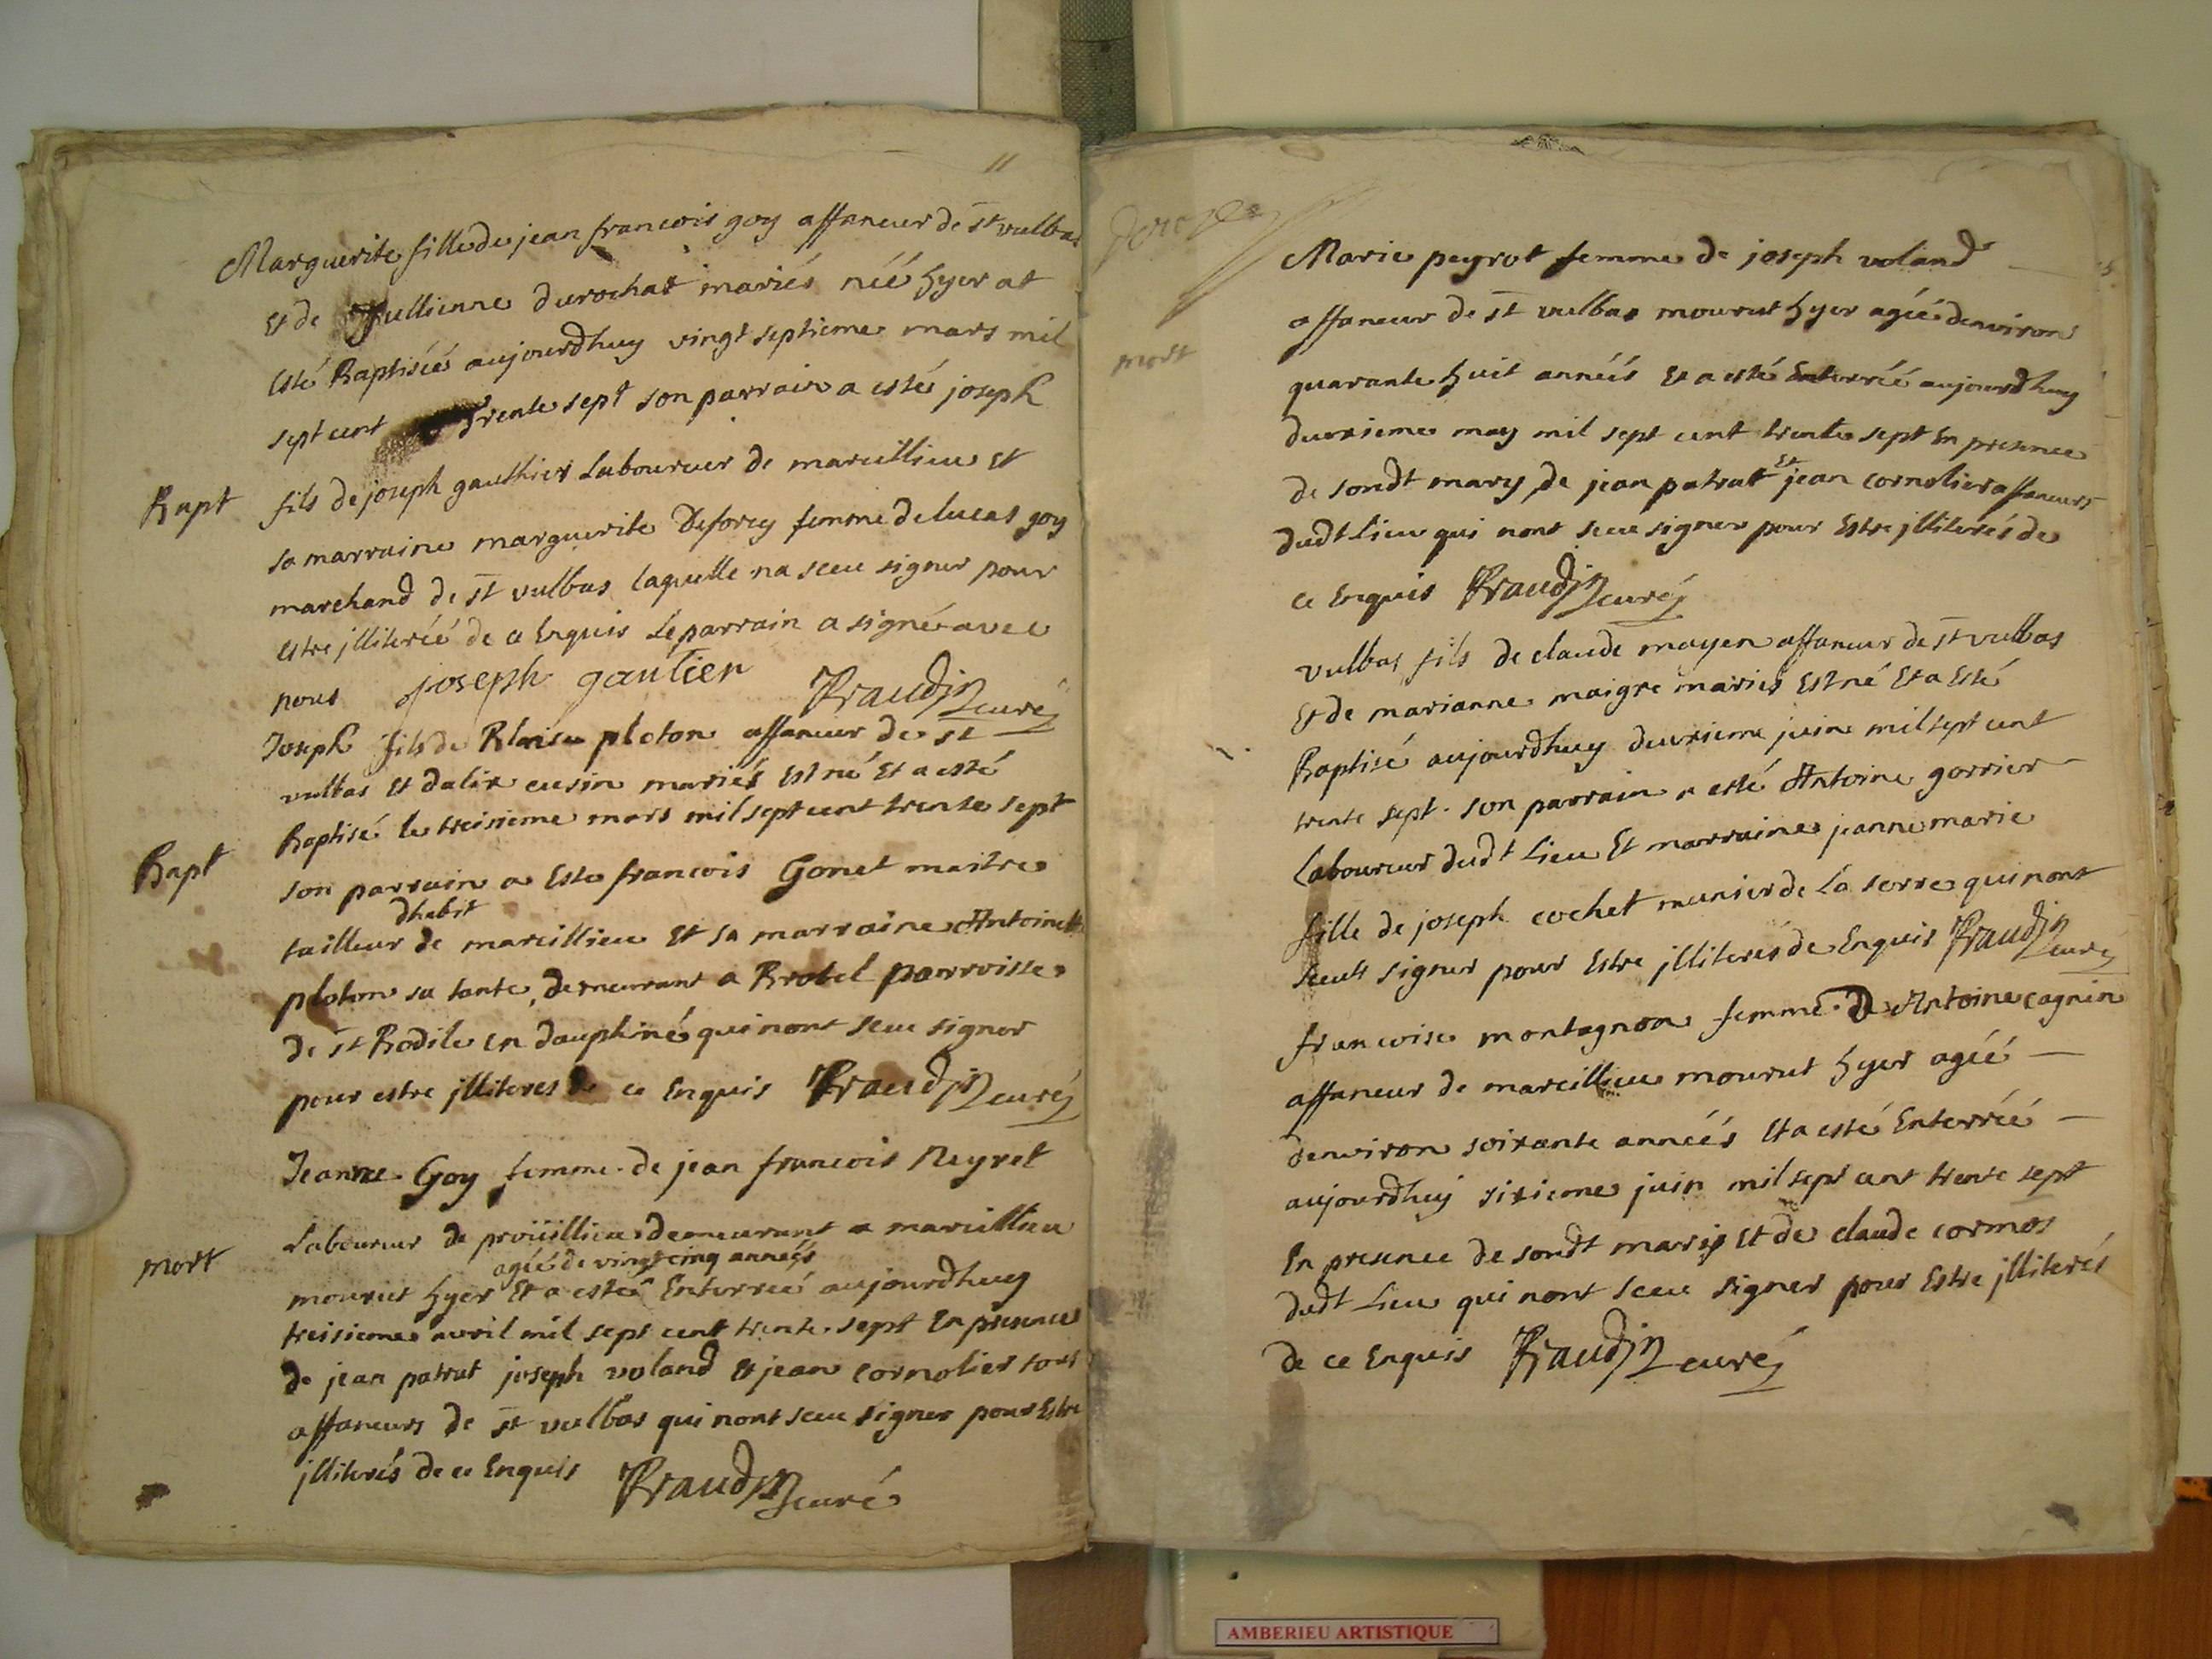 11
Marguerite fille de jean francois goy affaneur de st vulbas
et de Jullienne durochat mariés néé hyer at
esté Baptiséé aujourdhuy vingt septieme mars mil
sept cent trente sept son parrain a esté joseph
Bapt
fils de joseph gauthier Laboureur de marcillieu et
sa marraine marguerite Deforey femme de lucas goy
marchand de st vulbas laquelle na sceu signer pour
estre jlliteréé de ce Enquis Le parrain a signé avec
nous joseph gautier Braudin curé
Joseph fils de Blaise ploton affaneur de st
vulbas et dalix cusin mariés Est né Et a esté
Baptisé le treisieme mars mil sept cent trente sept
Bapt
son parrain a Este francois Gonet maitre
dhabit
tailleur de marcillieu Et sa marraine Antoinette
ploton sa tante, demeurant a Brotel parroisse
de st Bodile en dauphiné qui nont sceu signer
pour estre jlliteres de ce Enquis Braudin curé
Jeanne Goy femme de jean francois Neyret
Laboureur de proüillieu demeurant a marcillieu
mort
agéé de vingt cinq annéés
mourut hyer Et a esté Enterreé aujourdhuy
treisieme avril mil sept cent trente sept En presence
de jean patrat joseph voland et jean cornolier tous
affaneurs de st vulbas qui nont sceu signer pour Estre
jlliterés de ce Enquis Braudin curé
Marie peyrot femme de joseph voland
affaneur de st vulbas mourut hyer agéé denviron
mort
quarante huit annéés Et a esté Enterréé aujourdhuy
deuxieme may mil sept cent trente sept En presence
Et
de sondt mary, de jean patrat jean cornolier affaneurs
dudt Lieu qui nont sceu signer pour Estre jlliterés de
ce Enquis Braudin curé
vulbas fils de claude mayen affaneur de st vulbas
Et de marianne maigre mariés Est né Et a Esté
Baptisé aujourdhuy deuxieme juin mil sept cent
trente sept. son parrain a esté Antoine gorrier
Laboureur dudt Lieu Et marraine jeanne marie
fille de joseph cochet munier de La serre qui nont
sceut signer pour Estre jlliterés de Enquis Braudin curé
francoise montagnon femme de Antoine cagnin
affaneur de marcillieu mourut hyer agéé
denviron soixante annéés Et a esté Enterréé
aujourdhuy sixieme juin mil sept cent trente sept
En presence de sondt mary Et de claude cormos
dudt Lieu qui nont sceu signer pour Estre jlliterés
de ce Enquis Braudin curé
AMBERIEU ARTISTIQUE